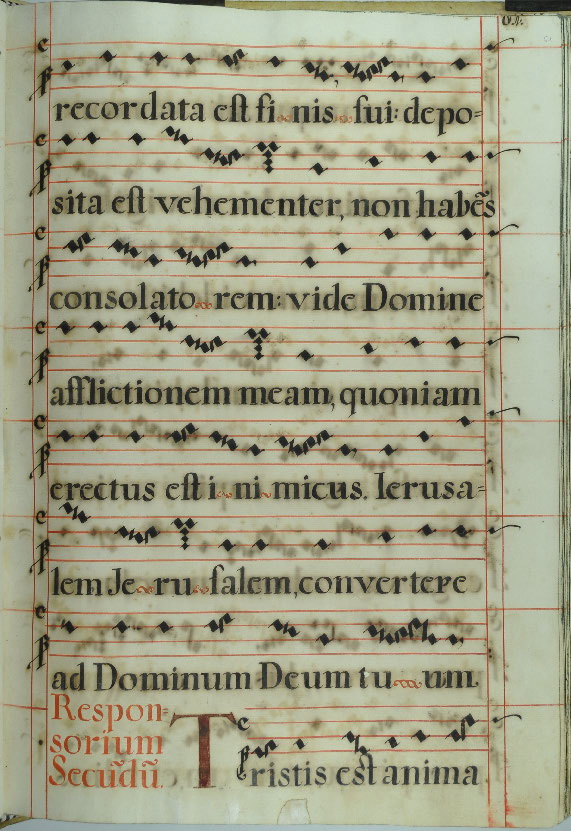 recordata est fi nis sui: depo=
sita est vehementer, non habẽs
consolato rem: vide Domine
afflictionem meam, quoniam
erectus est i ni micus. Ierusa=
lem Je ru salem, convertere
ad Dominum Deum tu um.
Respon=
sorium
Secũdũ.
Tristis est anima